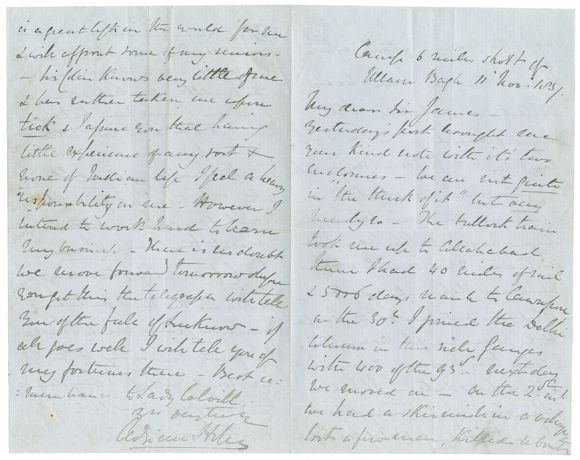 Camp 6 miles short of
Allum Bagh 11 Nov. 1857.
My dear Sir James -
Yesterday's post brought me
your kind note with it's two
enclosures - We are not quite
in "the thick of it" but very
nearly so - The bullock train
took me up to Allahabad,
then I had 40 miles of rail
& 5 or 6 days march to Cawnpore
on the 30th I joined the Delhi
column on this side Ganges
with 400 of the 93d - next day
we moved on - on the 2nd inst
we had a skirmish in a village
lost a few men, killed about
is a great lift in the world for me
& will affront some of my seniors -
- Sir Colin knows very little of me
& has rather taken me upon
tick & I assure you that having
little experience of any sort &
none of Indian life I feel a heavy
responsibility on me - However I
intend to work hard to learn
my business - There is no doubt
we move forward tomorrow & before
you get this the telegraph will tell
you of the fate of Lucknow - if
all goes well I will tell you of
my fortunes there - Best re-
:membrance to Lady Colvile
yrs very truly
Adrian Hope